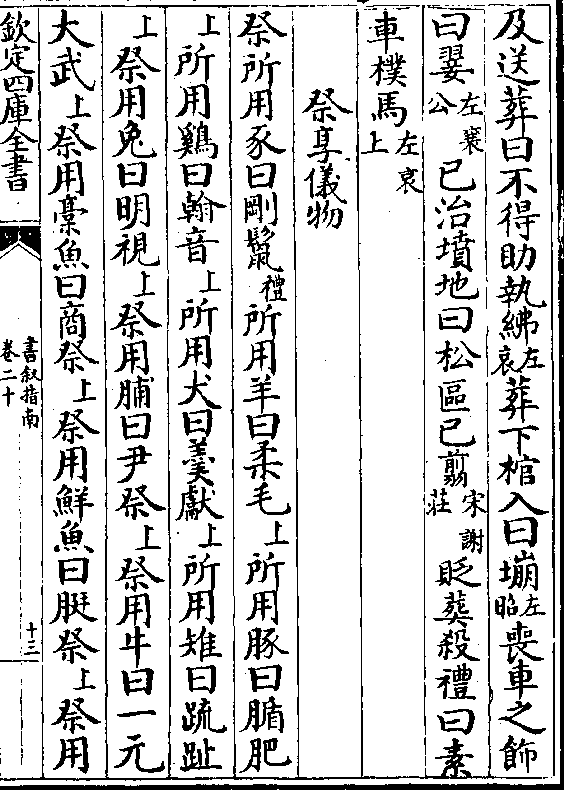 及送葬曰不得助執紼左哀葬下棺入曰塴左昭喪車之飾
曰翣左襄公已治墳地曰松區已翦宋謝莊貶葬殺禮曰素
車樸馬左哀上
祭享儀物
祭所用豕曰剛鬛禮所用羊曰柔毛上所用豚曰腯肥
上所用鷄曰翰音上所用犬曰羮獻上所用雉曰疏趾
上祭用兔曰明視上祭用脯曰尹祭上祭用牛曰一元
大武上祭用稾魚曰商祭上祭用鮮魚曰脡祭上祭用
欽定四庫全書
書叙指南
卷二十
十三